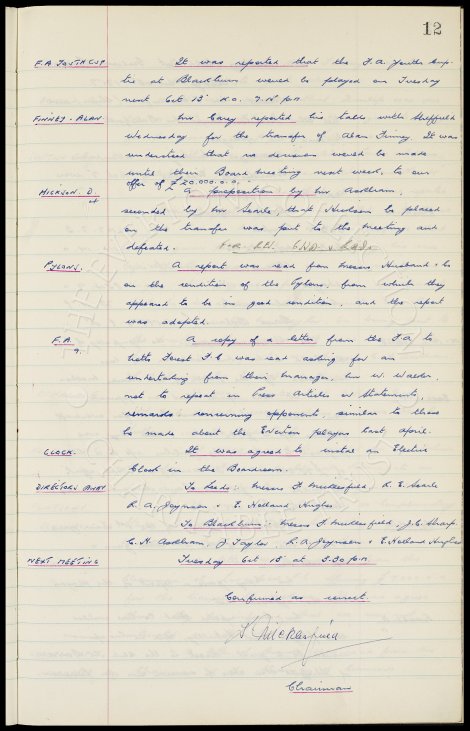 12
F.A. YOUTH CUP It was reported that the F.A. Youth Cup
tie at Blackburn would be played on Tuesday
next Oct 13th K.O. 7.15 p.m
FINNEY. ALAN Mr Carey reported his talks with Sheffield
Wednesday for the transfer of Alan Finney. It was
understood that no decision would be made
until their Board meeting next week, to our
offer of £20,000.0.0.
HICKSON. D. A proposition by Mr Askham,
seconded by Mr Searle, that Hickson be placed
on the transfer was put to the meeting and
defeated. FOR REN.
PYLONS. A report was read from Messrs Husband & Co
on the condition of the Pylons, from which they
appeared to be in good condition, and the report
was adopted.
F.A. A copy of a letter from the F.A. to
Notts Forest F.C was read asking for an
undertaking from their manager, Mr W. Walker,
not to repeat in Press Articles or Statements,
remarks, concerning opponents, similar to those
he made about the Everton players last April.
CLOCK. It was agreed to install an Electric
Clock in the Boardroom.
DIRECTORS AWAY To Leeds: Messrs F. Micklesfield, R. E. Searle
R. A. Joynson & E. Holland Hughes
To Blackburn: Messrs F. Micklesfield, J. C. Sharp,
C. H. Askham, J Taylor, R. A. Joynson & E. Holland Hughes
NEXT MEETING Tuesday Oct 13th at 3.30 p.m
Confirmed as correct.
F. Micklesfield
Chairman